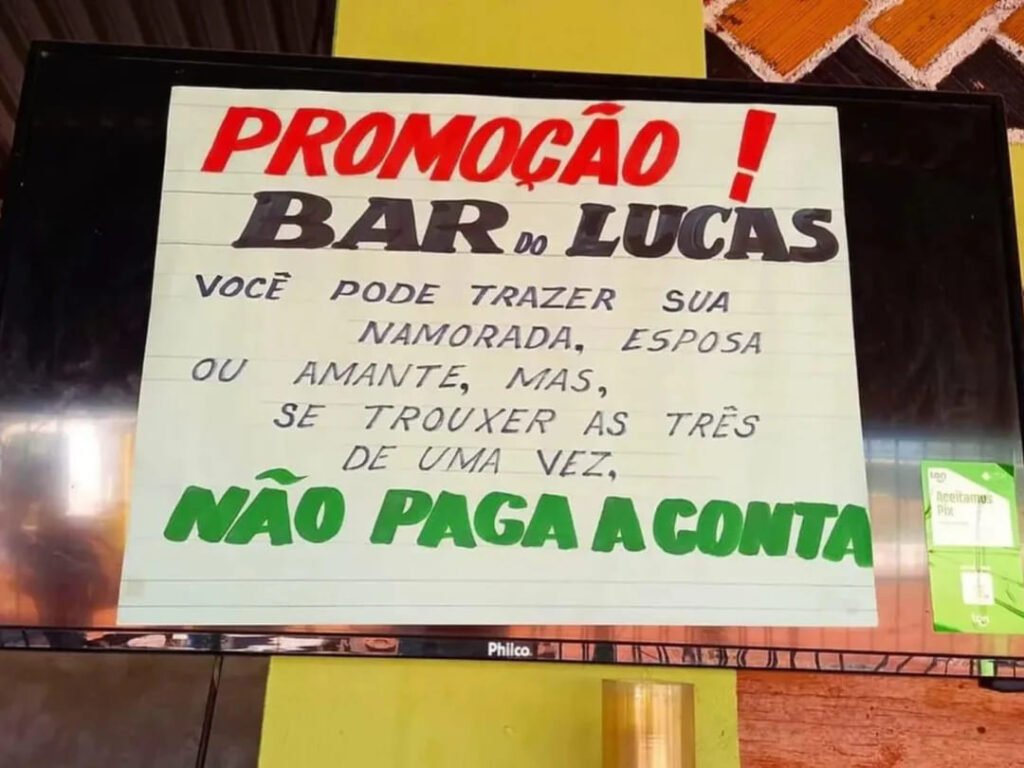 PROMOÇÃO !
BAR DO LUCAS
VOCÊ PODE TRAZER SUA
NAMORADA, ESPOSA
OU AMANTE, MAS,
SE TROUXER AS TRÊS
DE UMA VEZ,
NÃO PAGA A CONTA
Aceitamos
Pix
Philco